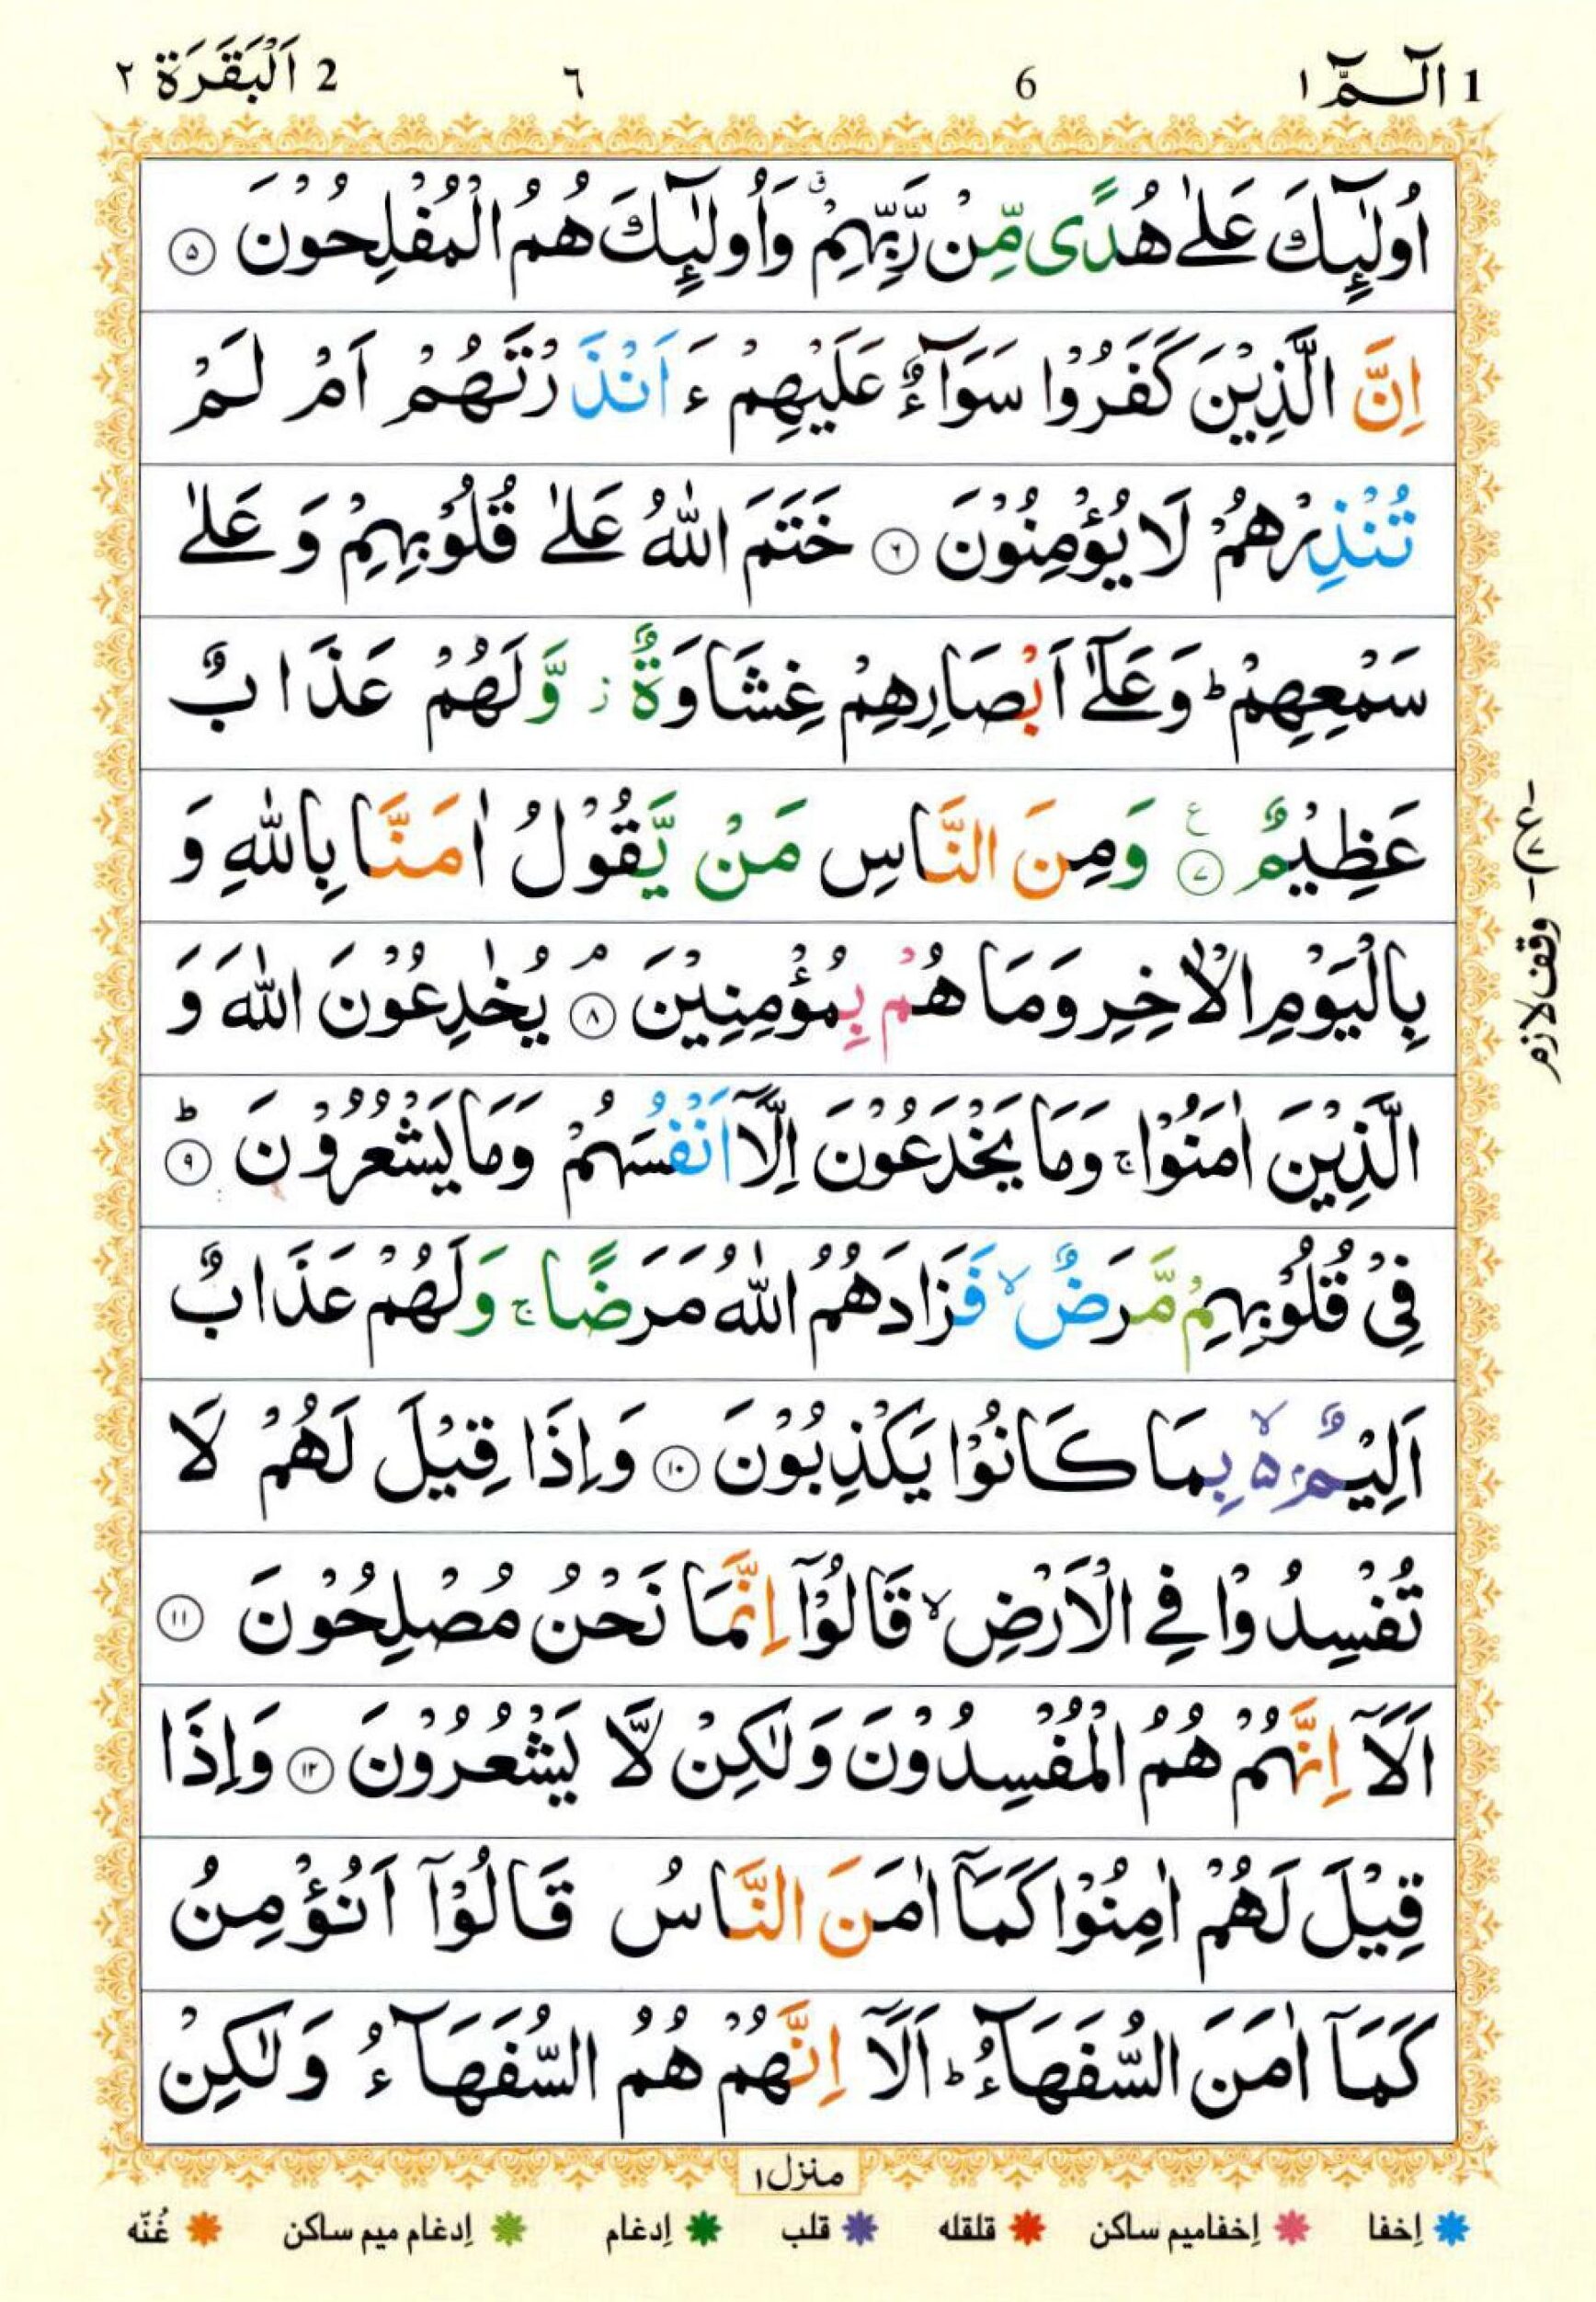 1 الٓـمّٓ ١ 6 ٦ 2 اَلْبَقَرَة ٢
اُولٰٓئِكَ عَلٰى هُدًى مِّنْ رَّبِّهِمْ ۗ وَاُولٰٓئِكَ هُمُ الْمُفْلِحُوْنَ ۝۵
اِنَّ الَّذِيْنَ كَفَرُوْا سَوَآءٌ عَلَيْهِمْ ءَاَنْذَرْتَهُمْ اَمْ لَمْ
تُنْذِرْهُمْ لَا يُؤْمِنُوْنَ ۝۶ خَتَمَ اللّٰهُ عَلٰى قُلُوْبِهِمْ وَ عَلٰى
سَمْعِهِمْ ؕ وَ عَلٰٓى اَبْصَارِهِمْ غِشَاوَةٌ ز وَّلَهُمْ عَذَابٌ
عَظِيْمٌ ۝۷ ع وَمِنَ النَّاسِ مَنْ يَّقُوْلُ اٰمَنَّا بِاللّٰهِ وَ
بِالْيَوْمِ الْاٰخِرِ وَمَا هُمْ بِمُؤْمِنِيْنَ ۘ ۝۸ يُخٰدِعُوْنَ اللّٰهَ وَ
الَّذِيْنَ اٰمَنُوْا ۚ وَمَا يَخْدَعُوْنَ اِلَّآ اَنْفُسَهُمْ وَمَا يَشْعُرُوْنَ ؕ ۝۹
فِيْ قُلُوْبِهِمْ مَّرَضٌ ۙ فَزَادَهُمُ اللّٰهُ مَرَضًا ۚ وَلَهُمْ عَذَابٌ
اَلِيْمٌ ۙ ۵ بِمَا كَانُوْا يَكْذِبُوْنَ ۝۱۰ وَاِذَا قِيْلَ لَهُمْ لَا
تُفْسِدُوْا فِي الْاَرْضِ ۙ قَالُوْٓا اِنَّمَا نَحْنُ مُصْلِحُوْنَ ۝۱۱
اَلَآ اِنَّهُمْ هُمُ الْمُفْسِدُوْنَ وَلٰكِنْ لَّا يَشْعُرُوْنَ ۝۱۲ وَاِذَا
قِيْلَ لَهُمْ اٰمِنُوْا كَمَآ اٰمَنَ النَّاسُ قَالُوْٓا اَنُؤْمِنُ
كَمَآ اٰمَنَ السُّفَهَآءُ ؕ اَلَآ اِنَّهُمْ هُمُ السُّفَهَآءُ وَلٰكِنْ
ع ۷
وقف لازم
منزل ۱
إخفا إخفاميم ساكن قلقله قلب إدغام إدغام ميم ساكن غُنّه